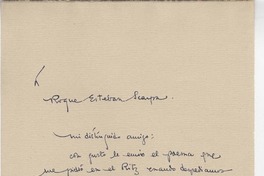 A
Roque Esteban Scarpa.
mi distinguido amigo:
con gusto le envío el poema que
me pidió en el Ritz cuando despedíamos